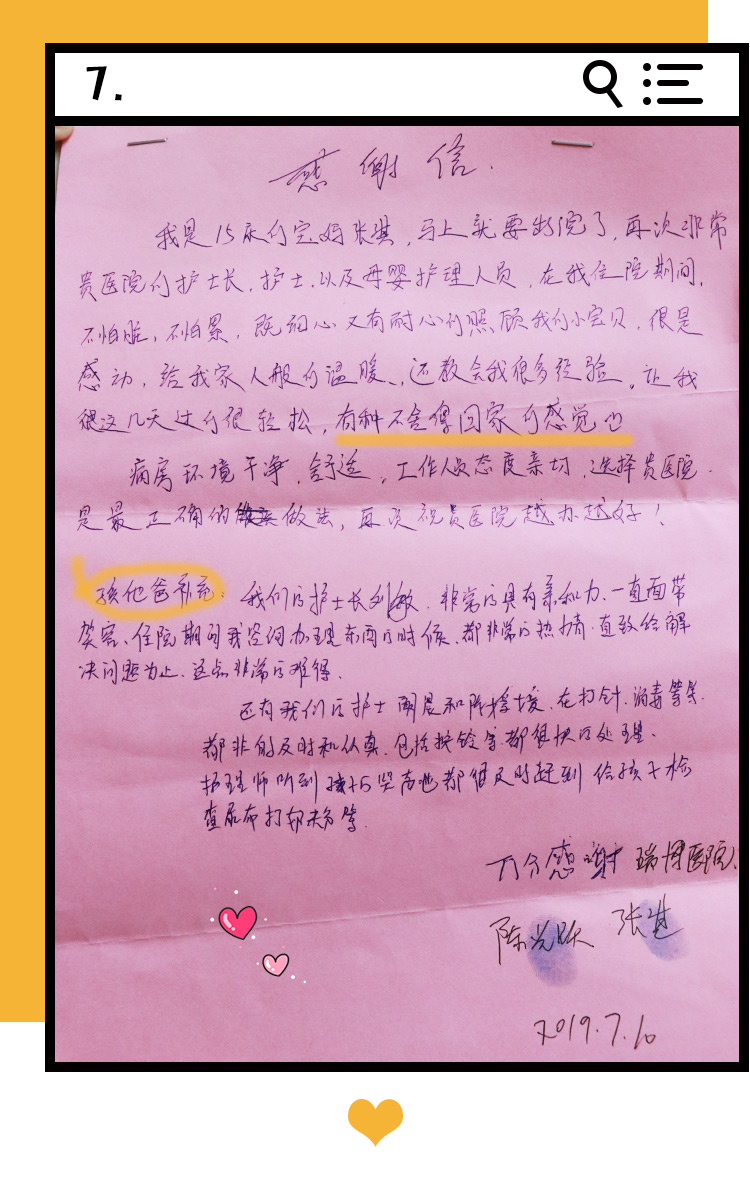 7.
感谢信.
我是15床的宝妈张琪,马上就要出院了,再次非常
贵医院的护士长,护士,以及母婴护理人员,在我住院期间,
不怕脏,不怕累,既细心又有耐心的照顾我们小宝贝,很是
感动,给我家人般的温暖、,还教会我很多经验。让我
这几天过的很轻松,有种不舍得回家的感觉
病房环境干净,舒适。工作人员态度亲切,选择贵医院.
是最正确的做法,再次祝贵医院越办越好!
孩他爸补充:我们的护士长刘敏.非常的具有亲和力、一直面带
笑容、住院期间我咨询办理东西的时候.都非常的热情.直致给解
决问题为止.这点非常的难得、
还有我们的护士 和陈 媛、在打针、消毒等等.
都非的及时和认真.包括按铃等.都很快的处理、
护理师听到孩子的哭声也都很及时赶到 给孩子检
查尿布打奶 等.
万分感谢瑞博医院、
陈 跃 张琪
2019.7.10